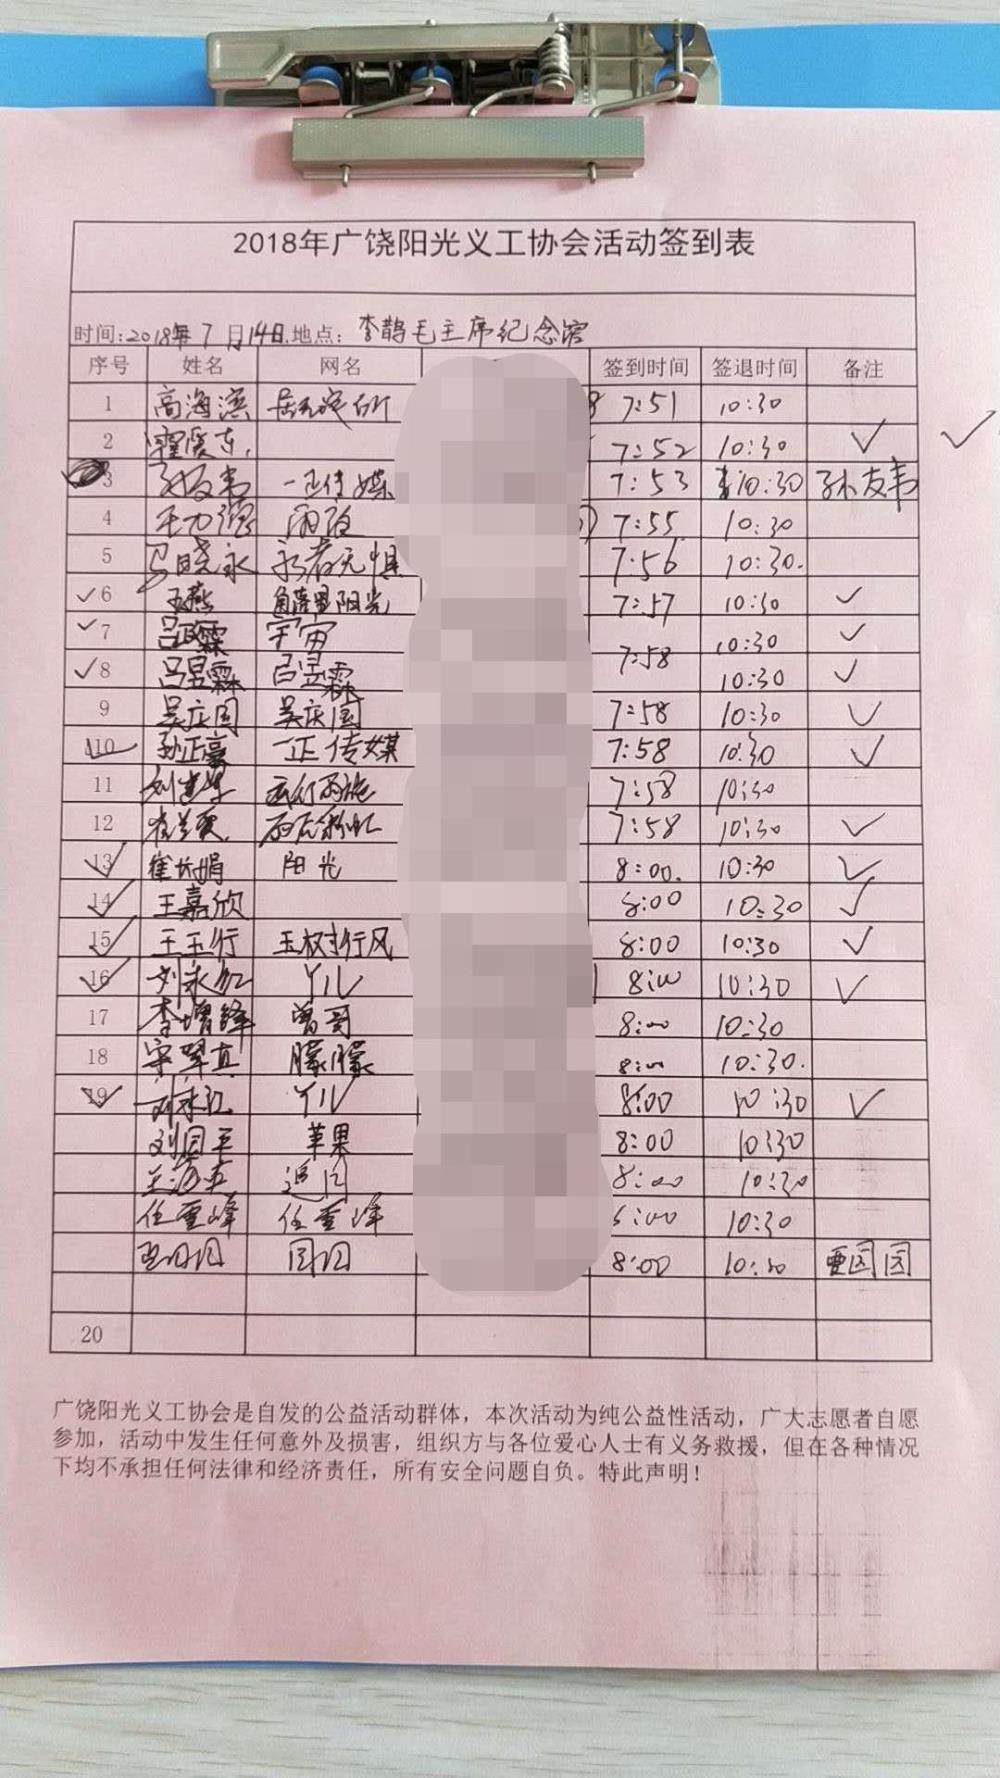 2018年广饶阳光义工协会活动签到表
时间:2018年7月14日.地点: 李鹊毛主席纪念馆
序号 姓名 网名 签到时间 签退时间 备注
1 高海滨 7:51 10:30
2 7:52 10:30 ✓ ✓
3 一正传媒 7:53 10:30 孙友韦
4 7:55 10:30
5 马晓永 永者无惧 7:56 10:30.
✓6 王燕 阳光 7:57 10:30 ✓
✓7 吕政霖 宇宙 10:30 ✓
7:58
✓8 吕昱霖 吕昱霖 10:30 ✓
9 吴庆国 吴庆国 7:58 10:30 ✓
10 孙正豪 一正传媒 7:58 10:30 ✓
11 刘建华 7:58 10:30
12 7:58 10:30 ✓
13 崔长娟 阳光 8:00. 10:30 ✓
14 王嘉欣 8:00 10:30 ✓
15 王玉行 玉树行风 8:00 10:30 ✓
16 刘永红 丫儿 8:00 10:30 ✓
17 李增锋 曾哥 8:00 10:30
18 宋翠真 朦朦 8:00 10:30.
19 刘永江 丫儿 8:00 10:30 ✓
刘同平 苹果 8:00 10:30
8:00 10:30
任重峰 任重峰 8:00 10:30
8:00 10:30
20
广饶阳光义工协会是自发的公益活动群体，本次活动为纯公益性活动，广大志愿者自愿
参加，活动中发生任何意外及损害，组织方与各位爱心人士有义务救援，但在各种情况
下均不承担任何法律和经济责任，所有安全问题自负。特此声明！